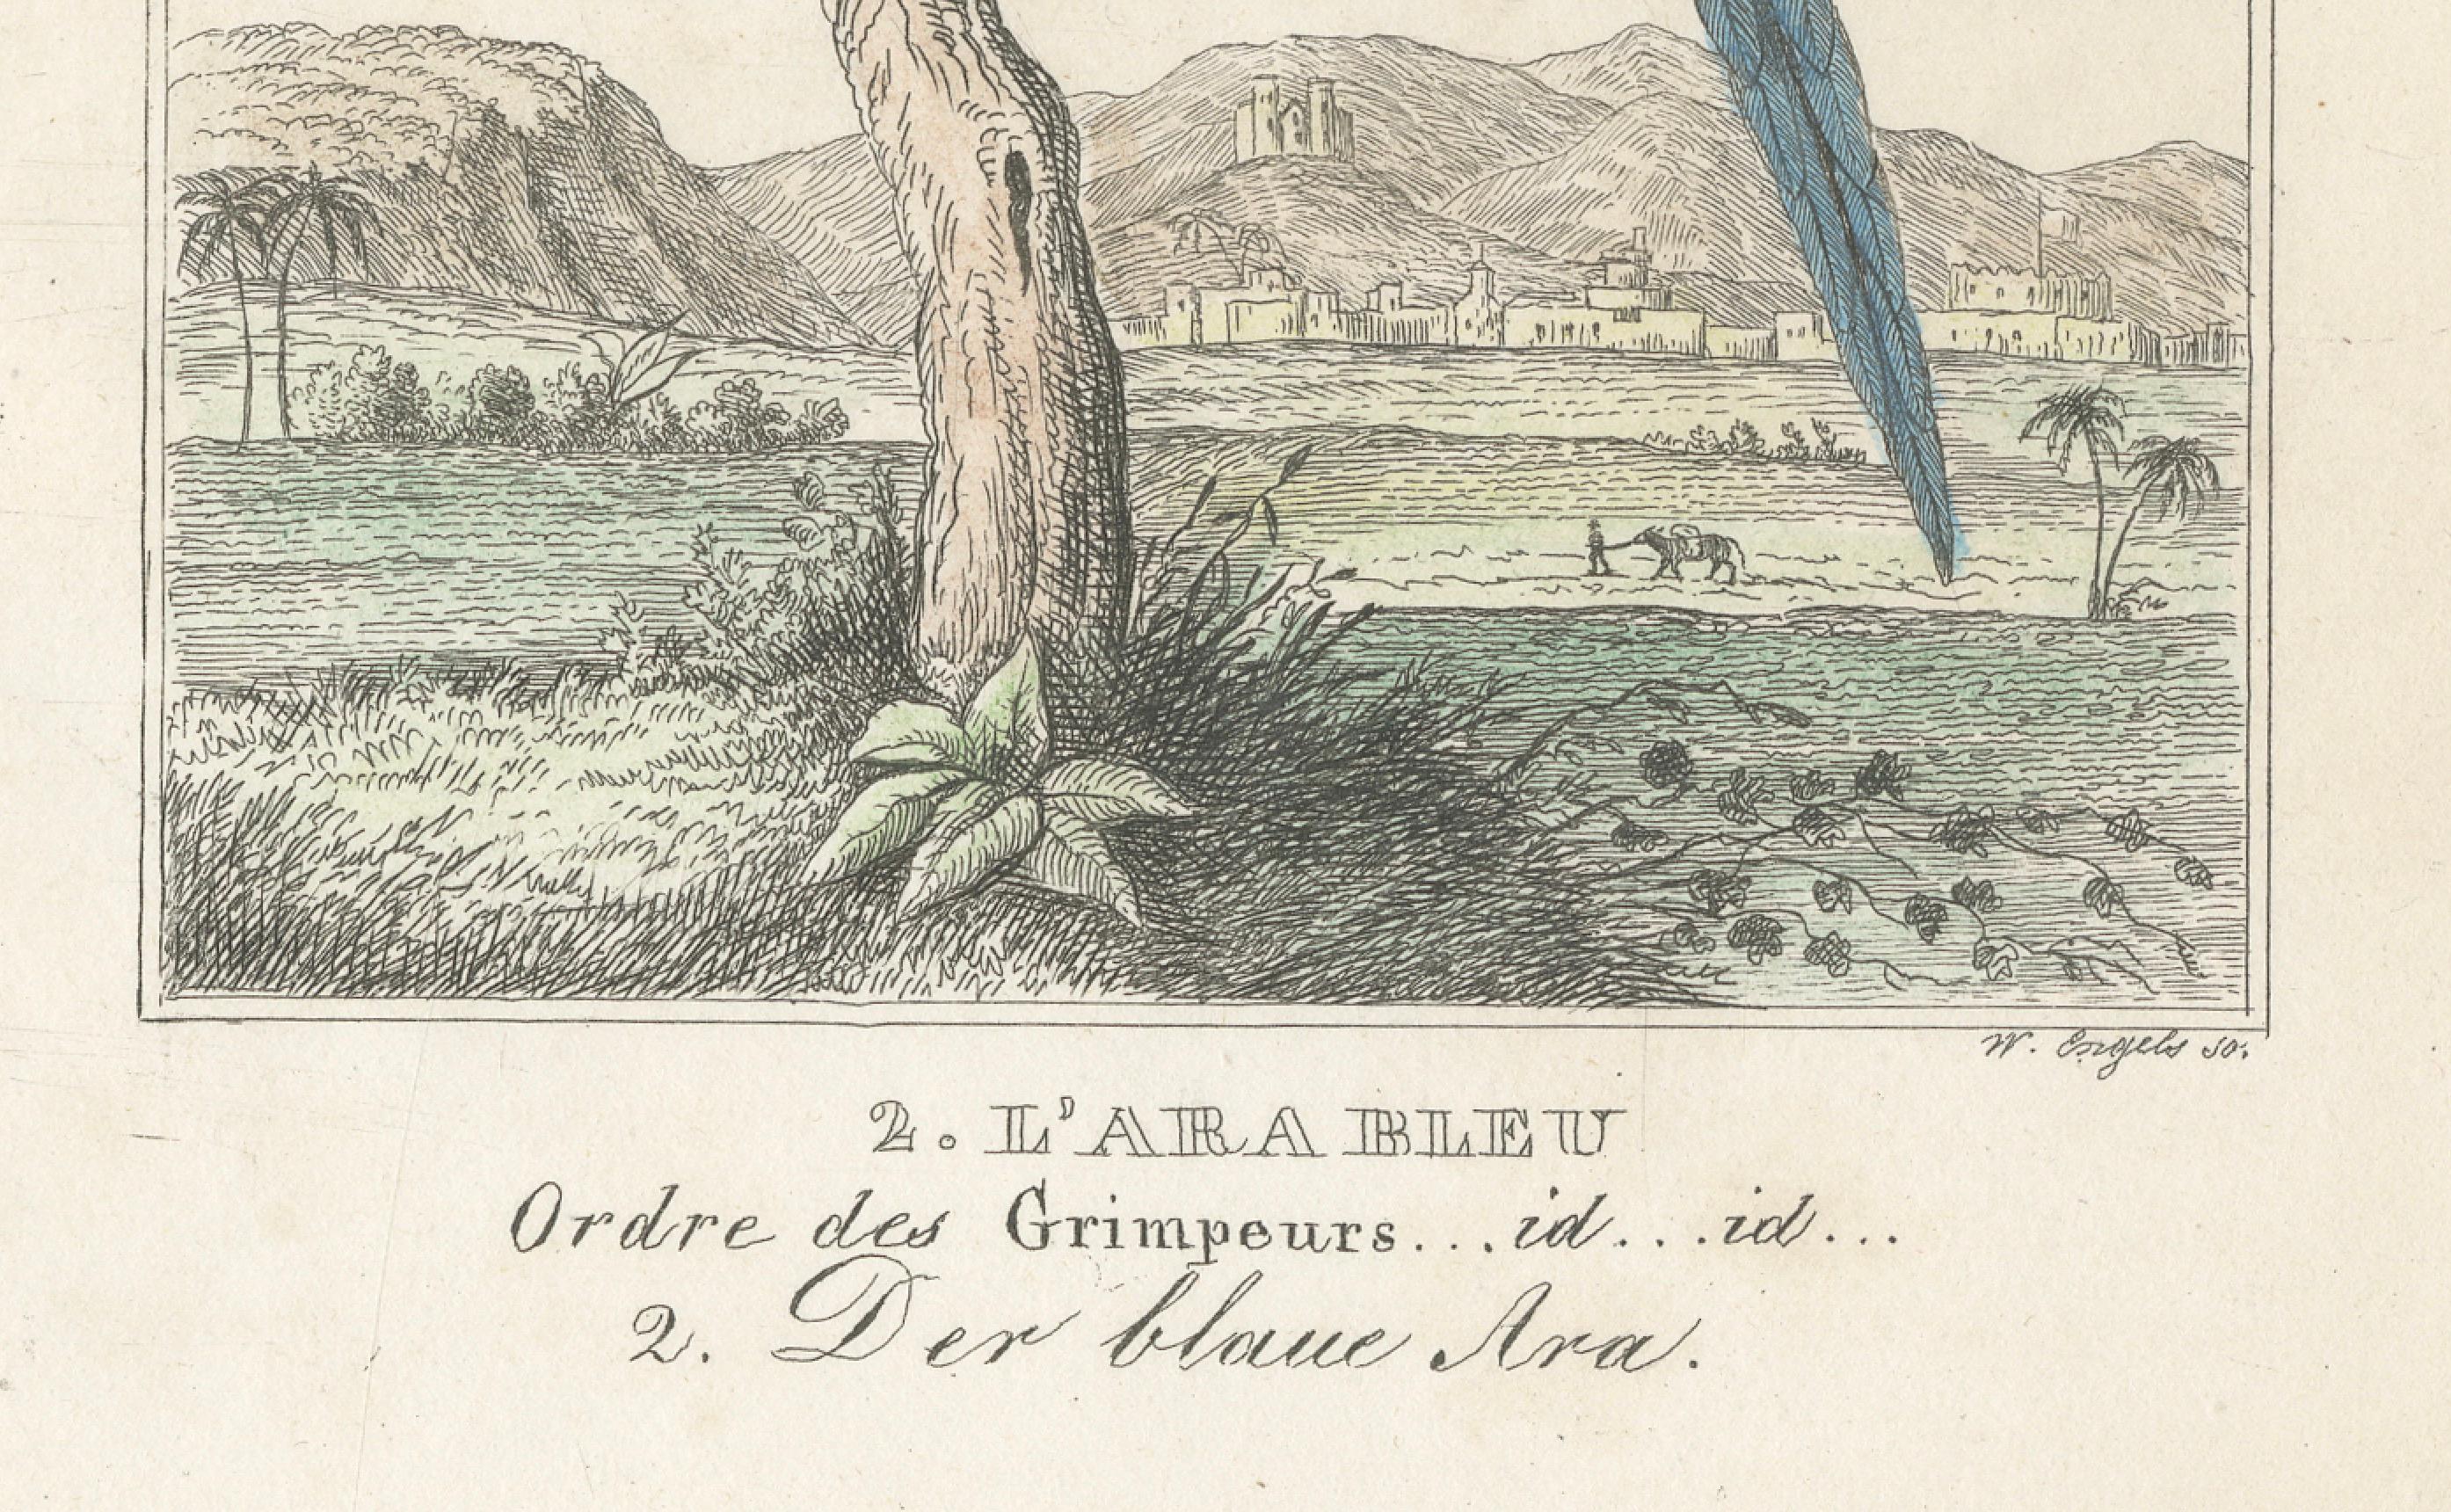 W. Engels sc.
2. L'ARA BLEU
Ordre des Grimpeurs...id...id...
2. Der blaue Ara.